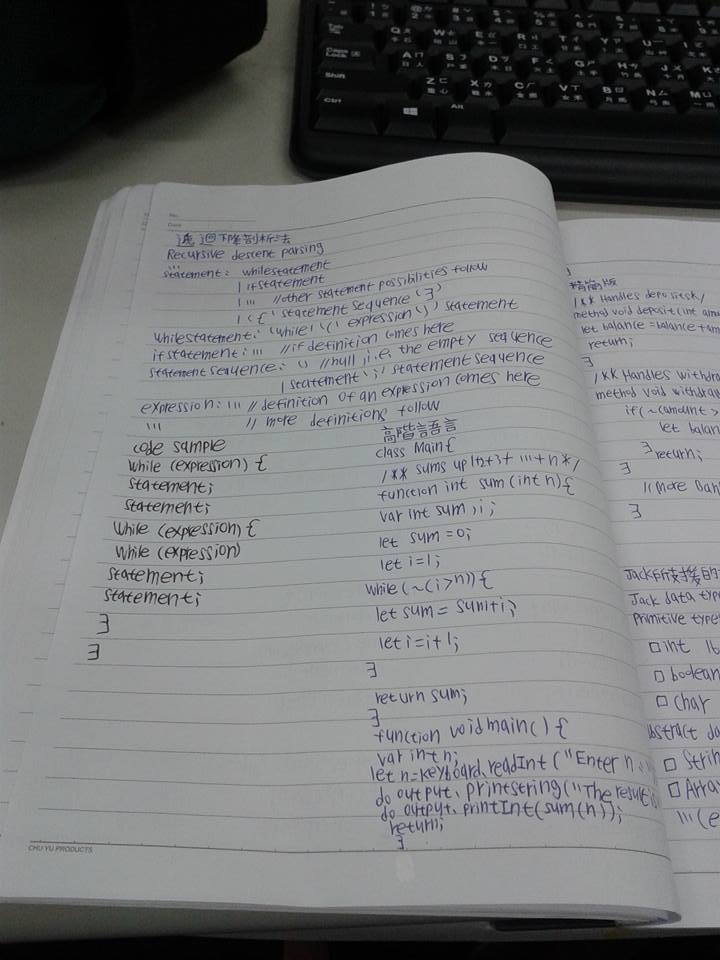 No.
Date
遞迴下降剖析法
Recursive descent parsing
...
statement: whilestatement
| ifstatement
| ... //other statement possibilities follow
| '{' statement sequence '}'
whilestatement: 'while' '(' expression ')' statement
ifstatement: ... //if definition comes here
statement sequence: '' //null, i.e. the empty sequence
| statement ';' statement sequence
expression: ... // definition of an expression comes here
... // more definitions follow
code sample
while (expression) {
statement;
statement;
while (expression) {
while (expression)
statement;
statement;
}
}
高階語言
class Main {
/** sums up 1+2+3+ ... +n */
function int sum (int n) {
var int sum, i;
let sum = 0;
let i=1;
while (~(i>n)) {
let sum = sum+i;
let i=i+1;
}
return sum;
}
function void main() {
var int n;
let n=keyboard.readInt ("Enter n:
do output.printstring("The result is
do output.printInt(sum(n));
return;
}
CHU YU PRODUCTS
}
精簡版
/** Handles deposits */
method void deposit (int
let balance = balance+
return;
}
/** Handles
method void
if (~(amount >
let
} return;
}
//more
}
Jack所支援的
Jack data
Primitive
□ int
□ boolean
□ char
□
□
...(e